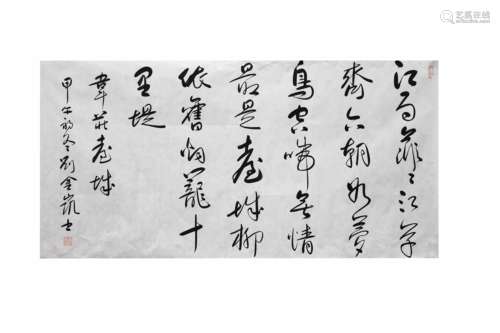 艺狐在线
江雨霏〻江草
齊六朝如夢
鳥空啼無情
最是臺城柳
依舊烟籠十
里堤
韋莊臺城
甲午初冬劉金